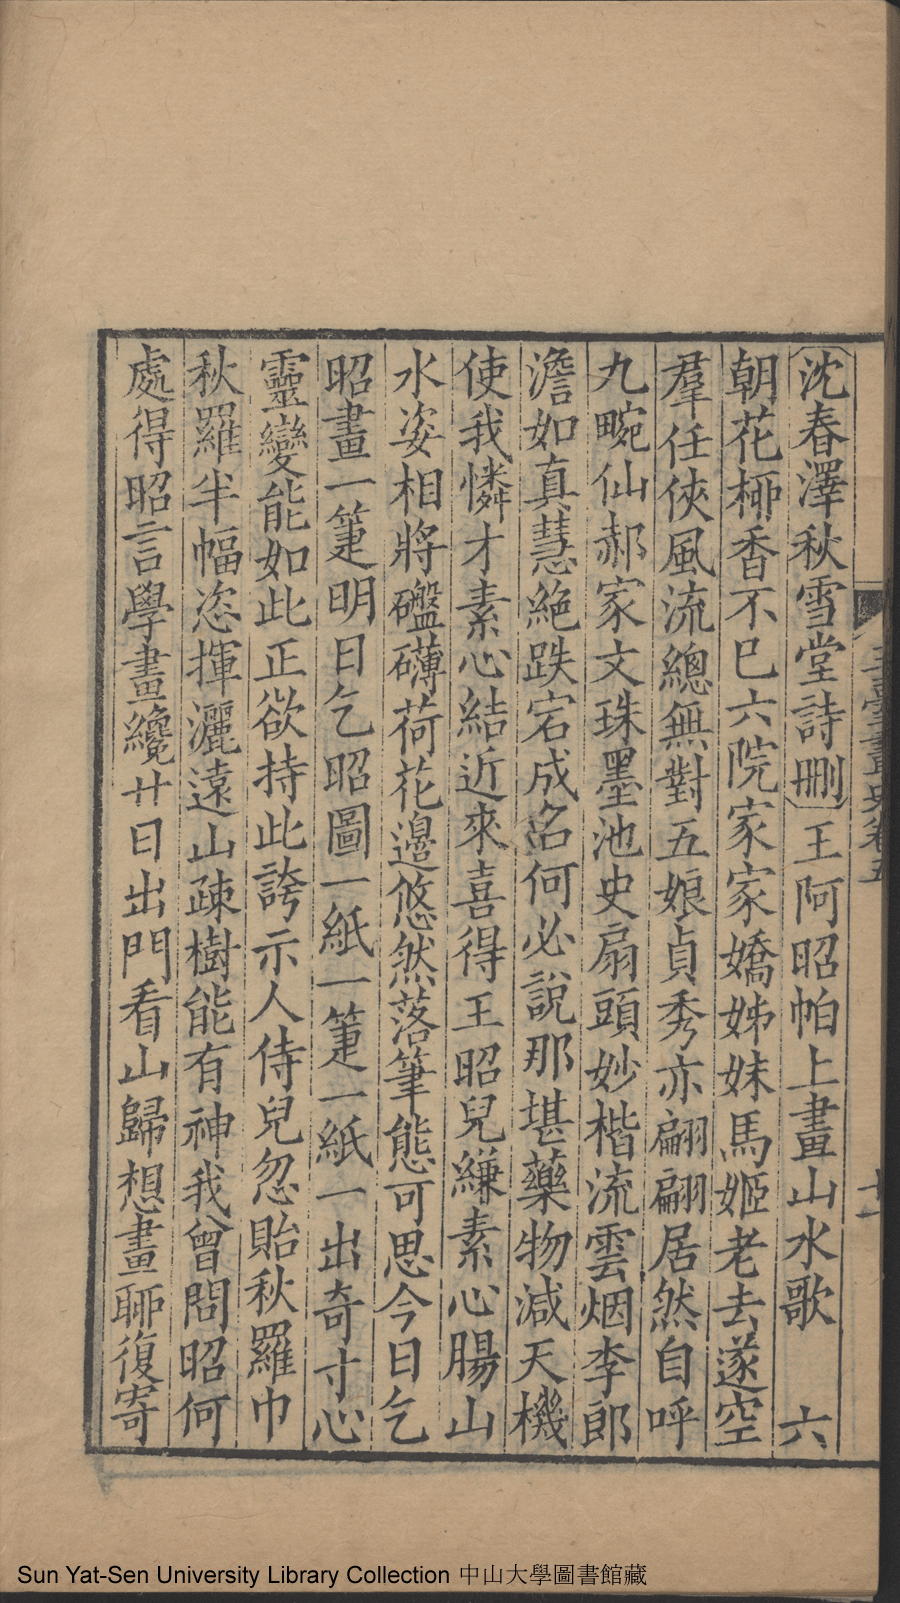 沈春澤秋雪堂詩刪王阿昭帕上畫山水歌　六
朝花柳香不巳六院家家嬌姊妹馬姬老去遂空
羣任俠風流總無對五娘貞秀亦翩翩居然自呼
九畹仙郝家文珠墨池史扇頭妙楷流雲烟李郎
澹如真慧絕跌宕成名何必說那堪藥物減天機
使我憐才素心結近來喜得王昭兒縑素心腸山
水姿相將礲礴荷花邊悠然落筆態可思今日乞
昭畫一箑明日乞昭圖一紙一箑一紙一出奇寸心
靈變能如此正欲持此誇示人侍兒忽貽秋羅巾
秋羅半幅恣揮灑遠山疎樹能有神我曾問昭何
處得昭言學畫纔廿日出門看山歸想畫聊復寄
玉臺畫史卷五
十一
Sun Yat-Sen University Library Collection 中山大學圖書館藏